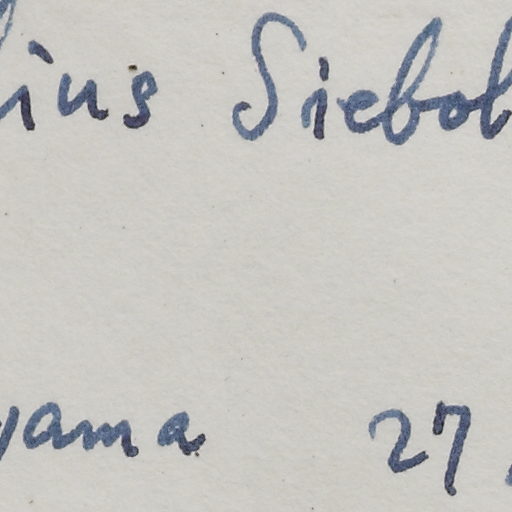 ius Siebol
yama 27